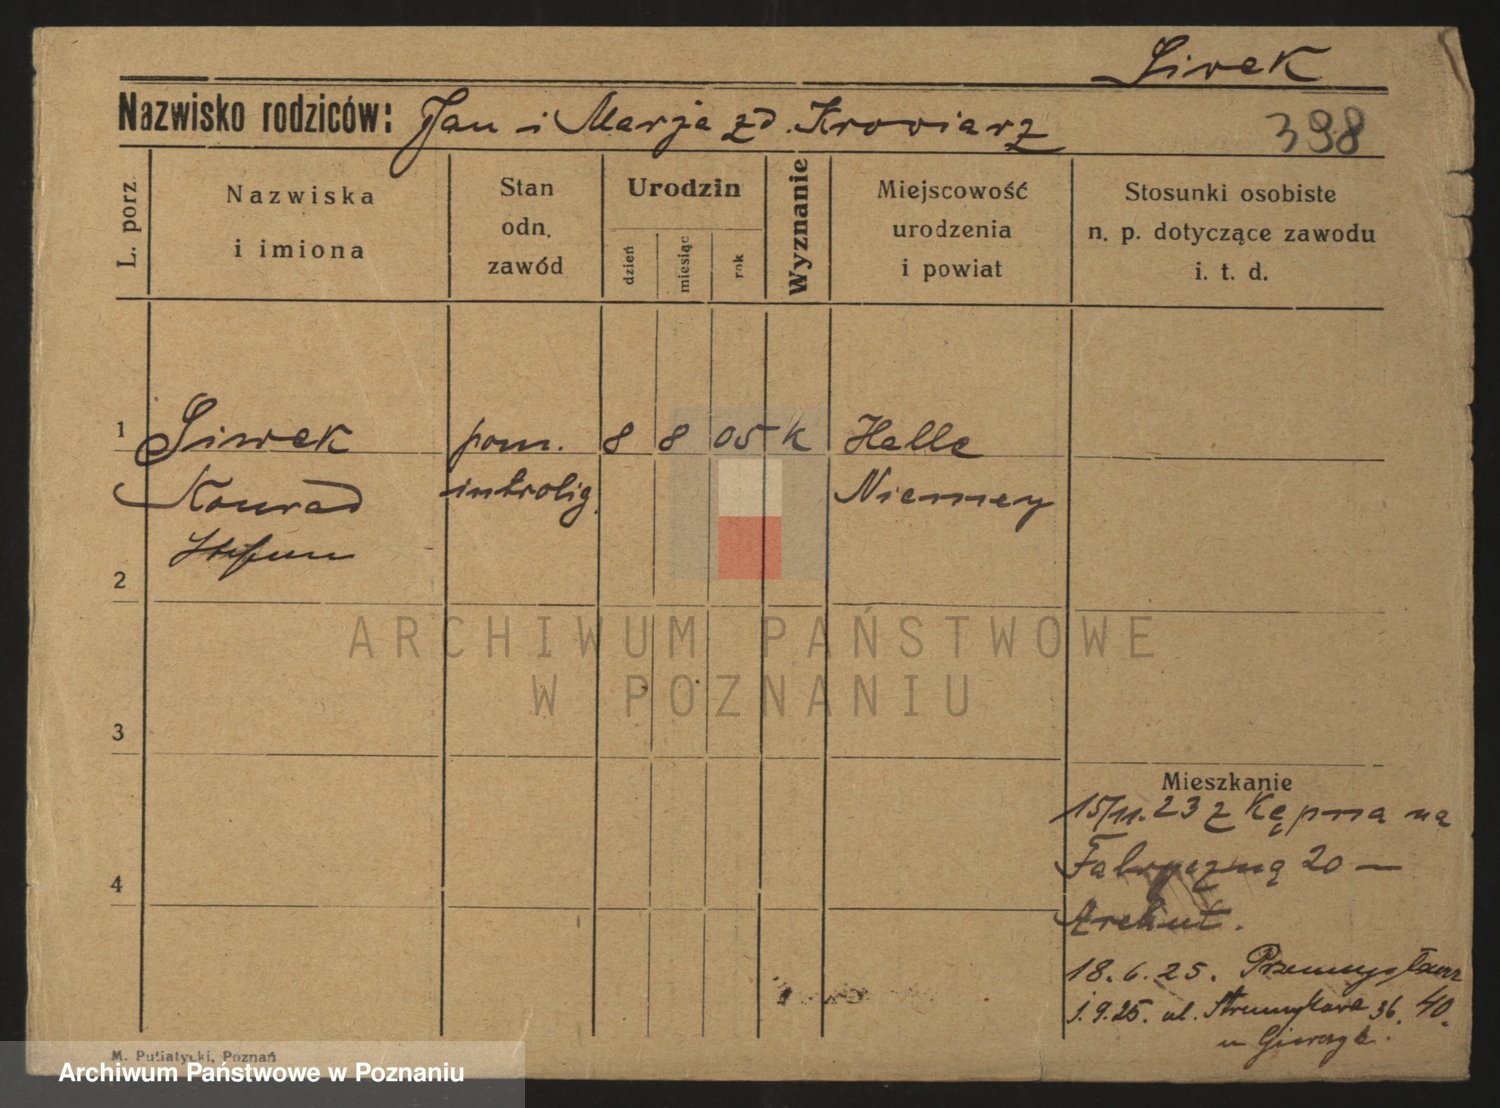 Siwek
Nazwisko rodziców: Jan i Marja zd. Krowiarz
398
L. porz.
Nazwiska
i imiona
Stan
odn.
zawód
Urodzin
dzień
miesiąc
rok
Wyznanie
Miejscowość
urodzenia
i powiat
Stosunki osobiste
n. p. dotyczące zawodu
i. t. d.
1
Siwek
Konrad
Stefan
pom.
introlig.
8 8 05 K
Halle
Niemcy
2
3
4
Mieszkanie
15/11.23 z Kępna na
Fabryczną 20 —
18.6.25. Przemysłowa
40.
1.9.25. ul. Strumykowa 36.
u
M. Putiatycki, Poznań
ARCHIWUM PAŃSTWOWE
W POZNANIU
Archiwum Państwowe w Poznaniu